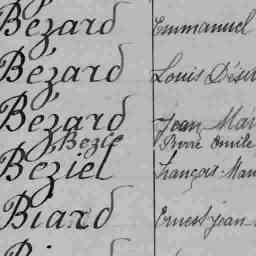 Bézard Emmanuel
Bézard Louis Désir
Bézard Jean Mar
Bezie Pierre Emile
Béziel François-Mar
Biard Ernest-jean